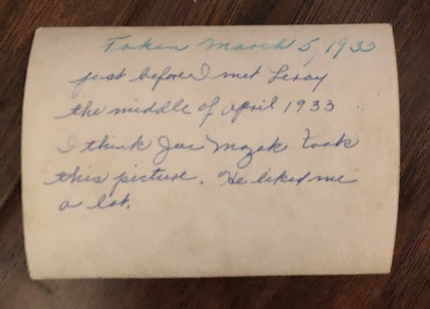 Taken March 5, 1933
just before I met Leroy
the middle of April 1933
I think Joe Mozak took
this picture. He liked me
a lot.